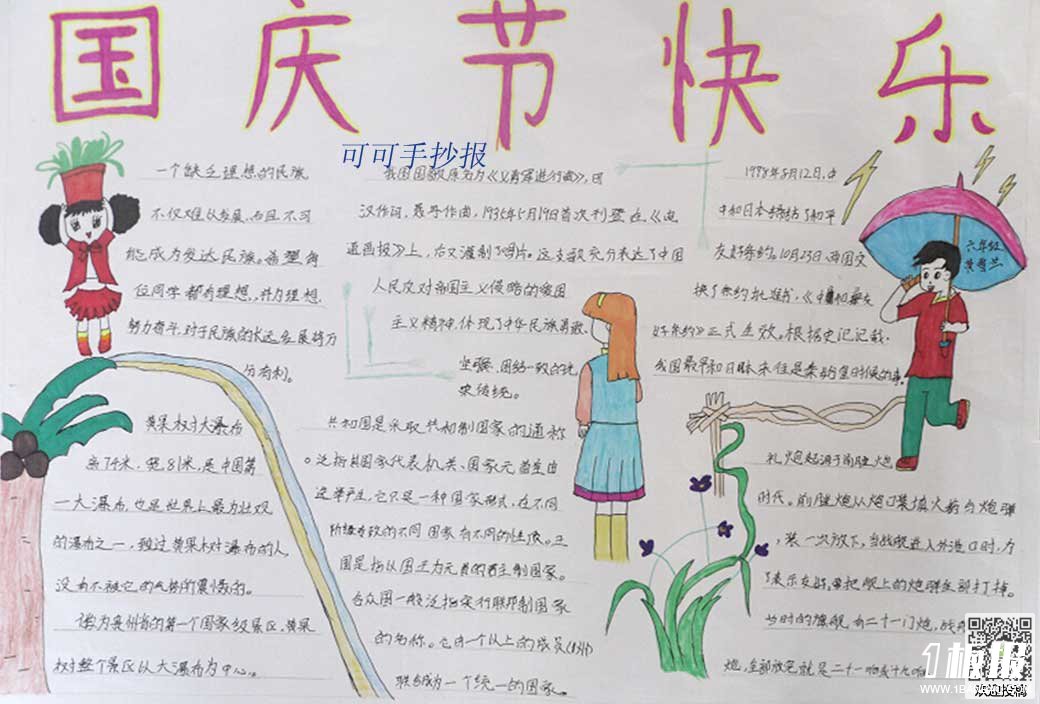 国庆节快乐
可可手抄报
一个缺乏理想的民族
不仅难以发展,而且不可
能成为发达民族。希望每
位同学都有理想,并为理想
努力奋斗,对于民族的长远发展将万
分有利。
我国国歌原名为《义勇军进行曲》,田
汉作词,聂耳作曲,1935年5月19日首次刊登在《电
通画报》上,后又灌制了唱片。这支歌充分表达了中国
人民反对帝国主义侵略的爱国
主义精神,体现了中华民族勇敢、
坚强、团结一致的优
宋传统。
1978年8月12日,中
中和日本缔结了和平
友好条约。10月23日,两国交
换了条约批准书,《中日和平友
好条约》正式生效。根据史记记载,
我国最早和日本来往是秦始皇时候的事。
六年级
黄果树大瀑布
高74米,宽81米,是中国第
一大瀑布,也是世界上最为壮观
的瀑布之一,到过黄果树瀑布的人,
没有不被它的气势所震憾的。
誉为贵州省的第一个国家级景区,黄果
树整个景区以大瀑布为中心。
共和国是采取共和制国家的通称
。泛指其国家代表机关、国家元首是由
选举产生,它只是一种国家形式,在不同
阶级专政的不同国家有不同的性质。王
国是指以国王为元首的君主制国家。
合众国一般泛指实行联邦制国家
的名称。它由一个以上的成员(州)
联合成为一个统一的国家。
礼炮起源于前膛炮
时代。前膛炮从炮口装填火药与炮弹
,装一次放下,当战舰进入外港口时,为
了表示友好,要把舰上的炮弹全部打掉。
当时的旗舰,有二十一门炮,战
炮,全部放完就是二十一响或十九响
WWW.1
欢迎投稿